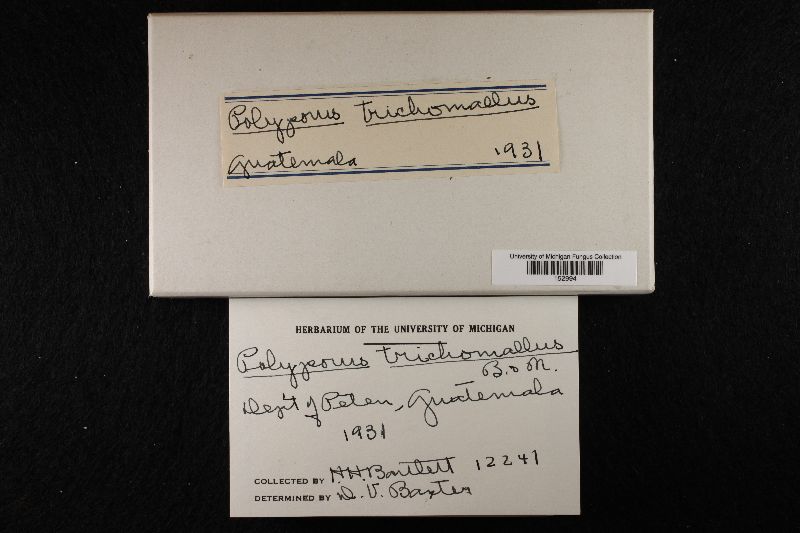 Polyporus trichomallus
Guatemala 1931
University of Michigan Fungus Collection
152994
HERBARIUM OF THE UNIVERSITY OF MICHIGAN
Polyporus trichomallus
B. & M.
Dep't of Peten, Guatemala
1931
COLLECTED BY H.H. Bartlett 12241
DETERMINED BY D. V. Baxter